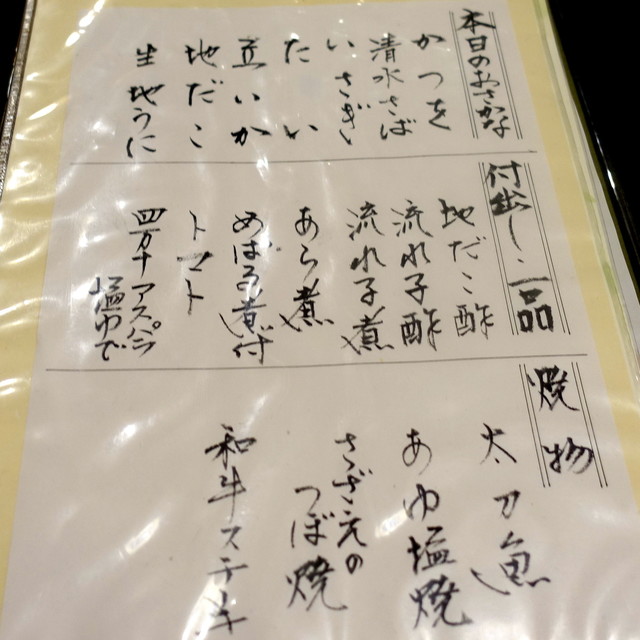 本日のおさかな
かつを
清水さば
いさぎ
たい
立いか
地だこ
生地うに
付出し、一品
地だこ酢
流れ子酢
流れ子煮
あら煮
めばる煮付
トマト
四万十アスパラ
塩ゆで
焼物
太刀魚
あゆ塩焼
さざえの
つぼ焼
和牛ステーキ